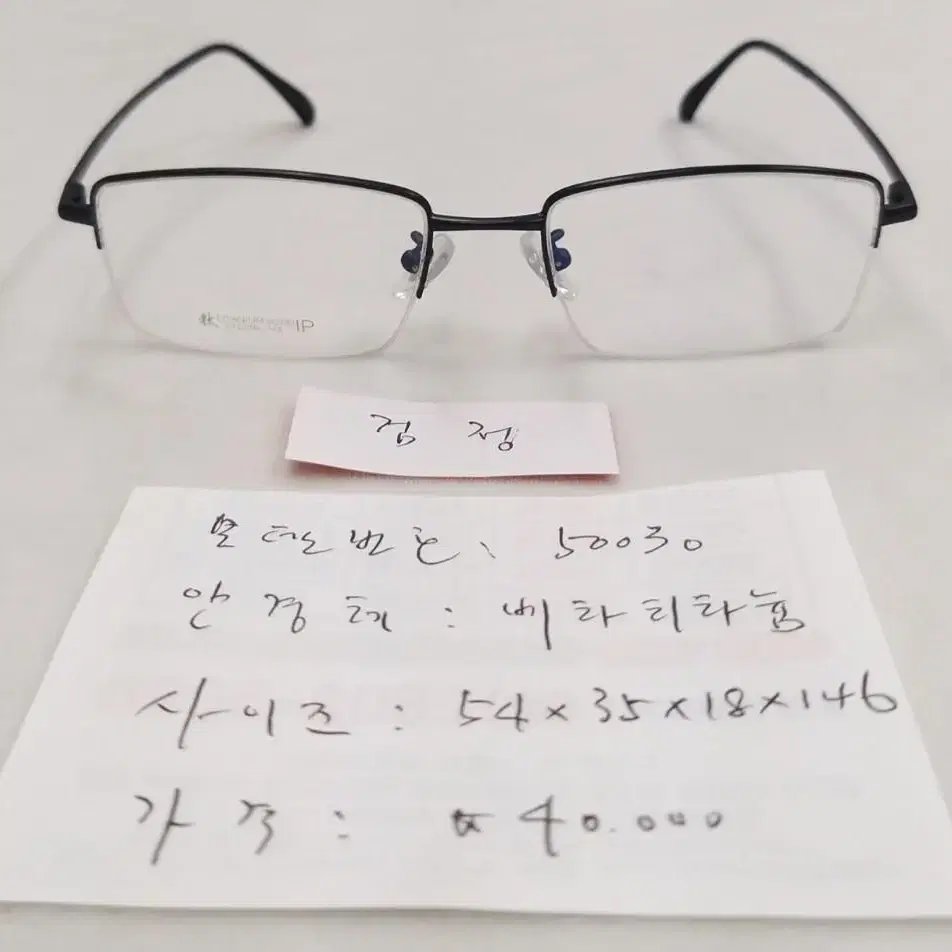 IP
검정
모델번호: 50030
안경테 : 베타티타늄
사이즈 : 54×35×18×146
가격 : ₩40.000